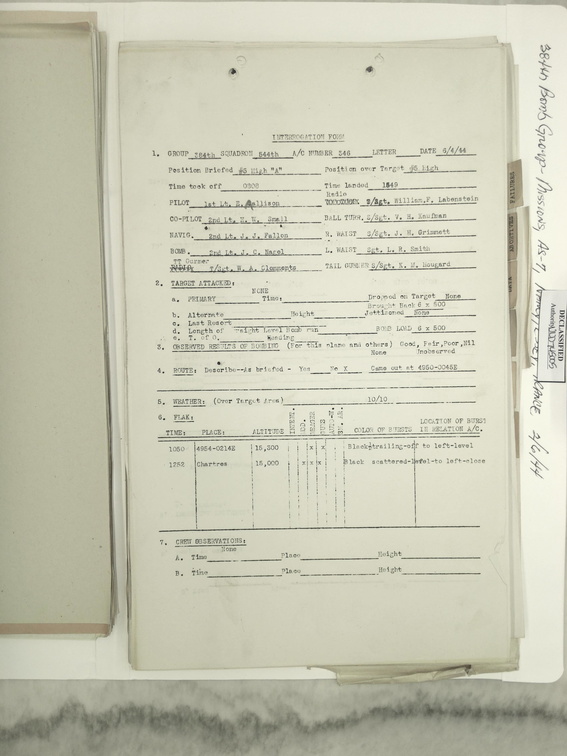 INTERROGATION FORM
1. GROUP 384th SQUADRON 544th A/C NUMBER 346 LETTER DATE 6/4/44
Position Briefed #5 High "A" Position over Target #5 High
Time took off 0808 Time landed 1349
Radio
PILOT 1st Lt. E. Allison T/Sgt. William,F. Labenstein
CO-PILOT 2nd Lt. E. H. Small BALL TURR. S/Sgt. V. H. Kaufman
NAVIG. 2nd Lt. J. J. Fallon R. WAIST S/Sgt. J. W. Grismett
BOMB. 2nd Lt. J. C. Nagel L. WAIST Sgt. L. R. Smith
TT Gunner
T/Sgt. W. A. Clements TAIL GUNNER S/Sgt. K. M. Hougard
2. TARGET ATTACKED:
NONE
a. PRIMARY Time: Dropped on Target None
Brought Back 6 x 500
b. Alternate Height Jettisoned None
c. Last Resort
d. Length of Straight Level Bomb run BOMB LOAD 6 x 500
e. T. of O. Heading
3. OBSERVED RESULTS OF BOMBING (For this plane and others) Good, Fair,Poor,Nil
None Unobserved
4. ROUTE: Describe--As briefed - Yes No X Came out at 4950-0045E
5. WEATHER: (Over Target Area) 10/10
6. FLAK:
TIME: PLACE: ALTITUDE INTENT. MOD. MEAGER COLOR OF BURSTS LOCATION OF BURST IN RELATION A/C.
1030 4954-0214E 15,300 x x Black-trailing-off to left-level
1252 Chartres 15,000 x x x Black scattered-level-to left-close
7. CREW OBSERVATIONS:
None
A. Time Place Height
B. Time Place Height
384th Bomb Group - Missions, AS-7,
FRANCE
DECLASSIFIED
Authority